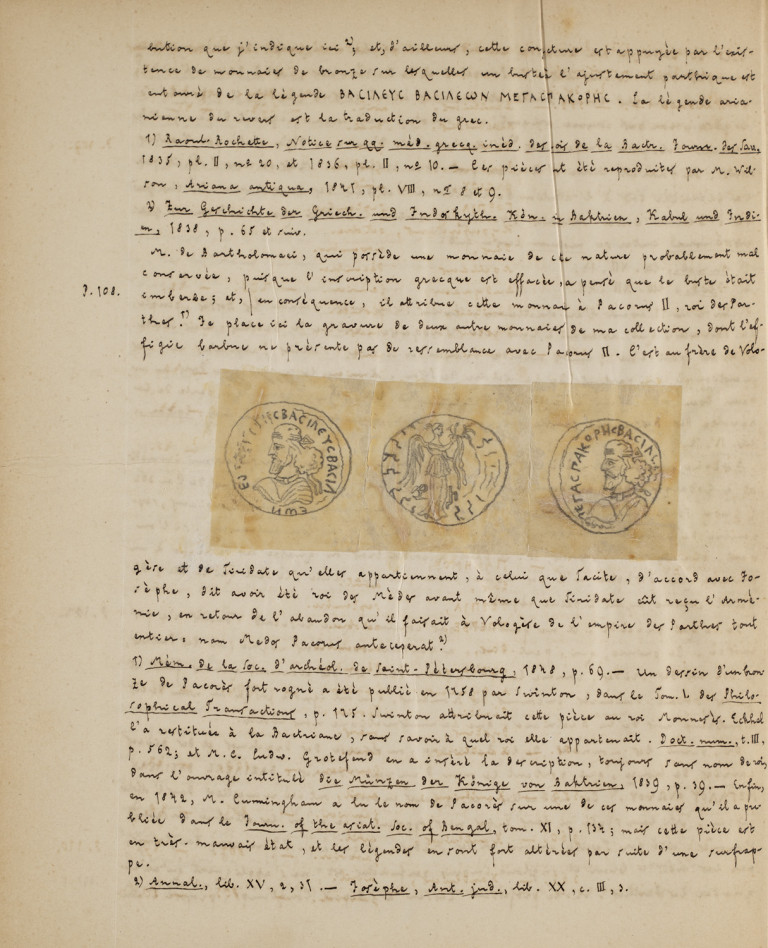 bution que j'indique ici 2); et, d'ailleurs, cette conjecture est appuyée par l'exis-
tence de monnaies de bronze sur lesquelles un buste à l'ajustement parthique est
entouré de la légende ΒΑCΙΛΕΥC ΒΑCΙΛΕΩΝ ΜΕΓΑCΠΑΚΟΡΗC. La légende aria-
nienne du revers est la traduction du grec.
1) Raoul-Rochette, Notice sur qq. méd. grecq. inéd. des rois de la Bactr. Journ. des Sav.
1835, pl. II, nº 20, et 1836, pl. II, nº 10. — Ces pièces ont été reproduites par M. Wil-
son, Ariana antiqua, 1841, pl. VIII, nos 8 et 9.
2) Zur Geschichte der Griech. und Indoskyth. Kön. in Baktrien, Kabul und Indi-
en, 1838, p. 65 et suiv.
M. de Bartholomaei, qui possède une monnaie de cette nature probablement mal
conservée, puisque l'inscription grecque est effacée, a pensé que le buste était
P. 108.
imberbe; et, en conséquence, il attribue cette monnaie à Pacorus II, roi des Par-
thes. 1) Je place ici la gravure de deux autres monnaies de ma collection, dont l'ef-
figie barbue ne présente pas de ressemblance avec Pacorus II. C'est au frère de Volo-
ΒΑCΙΛΕΥCΒΑCΙΛ
ΕΩΝ
ΜΕΓΑCΠΑΚΟΡΗCΒΑCΙΛ
gèse et de Tiridate qu'elles appartiennent, à celui que Tacite, d'accord avec Jo-
sèphe, dit avoir été roi des Mèdes avant même que Tiridate eût reçu l'Armé-
nie, en retour de l'abandon qu'il faisait à Vologèse de l'empire des Parthes tout
entier: nam Medos Pacorus anteceperat. 2)
1) Mém. de la Soc. d'archéol. de Saint-Pétersbourg, 1848, p. 69. — Un dessin d'un bron-
ze de Pacorès fort rogné a été publié en 1758 par Swinton, dans le Tom. L des Philo-
sophical Transactions, p. 175. Swinton attribuait cette pièce au roi Monnesès. Eckhel
l'a restituée à la Bactriane, sans savoir à quel roi elle appartenait. Doct. num., t. III,
p. 562; et M. C. Ludw. Grotefend en a inséré la description, toujours sans nom de roi,
dans l'ouvrage intitulé die Münzen der Könige von Baktrien, 1839, p. 39. — Enfin,
en 1842, M. Cunningham a lu le nom de Pacorès sur une de ces monnaies qu'il a pu-
bliée dans le Journ. of the asiat. Soc. of Bengal, tom. XI, p. 137; mais cette pièce est
en très-mauvais état, et les légendes en sont fort altérées par suite d'une surfrap-
pe.
2) Annal., lib. XV, 2, 31. — Josèphe, Ant. jud., lib. XX, c. III, 3.